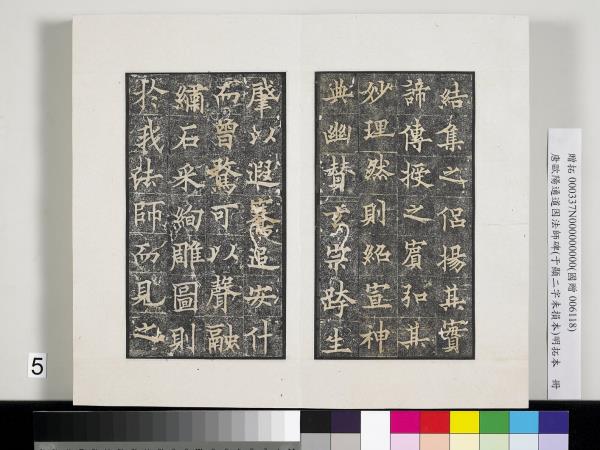 結集之侶揚其實
諦傳授之賓弘其
妙理然則紹宣神
典幽賛玄宗跨生
肇以遐騫追安什
而曾騖可以聲融
繡石采絢雕圖則
於我法師而見之
贈拓 000337N000000000(國贈 006118)
唐歐陽通道因法師碑(于顯二字未損本)明拓本 冊
5